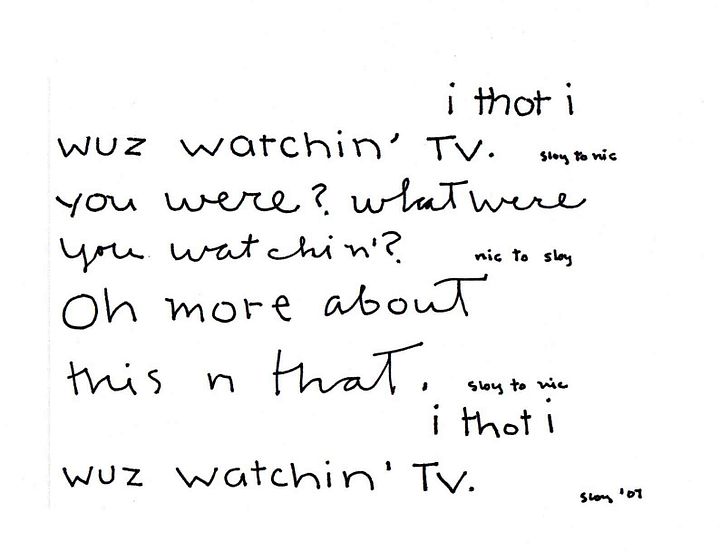 i thot i
wuz watchin' TV. sloy to nic
you were? what were
you watchin'? nic to sloy
Oh more about
this n that. sloy to nic
i thot i
wuz watchin' TV.
sloy '07